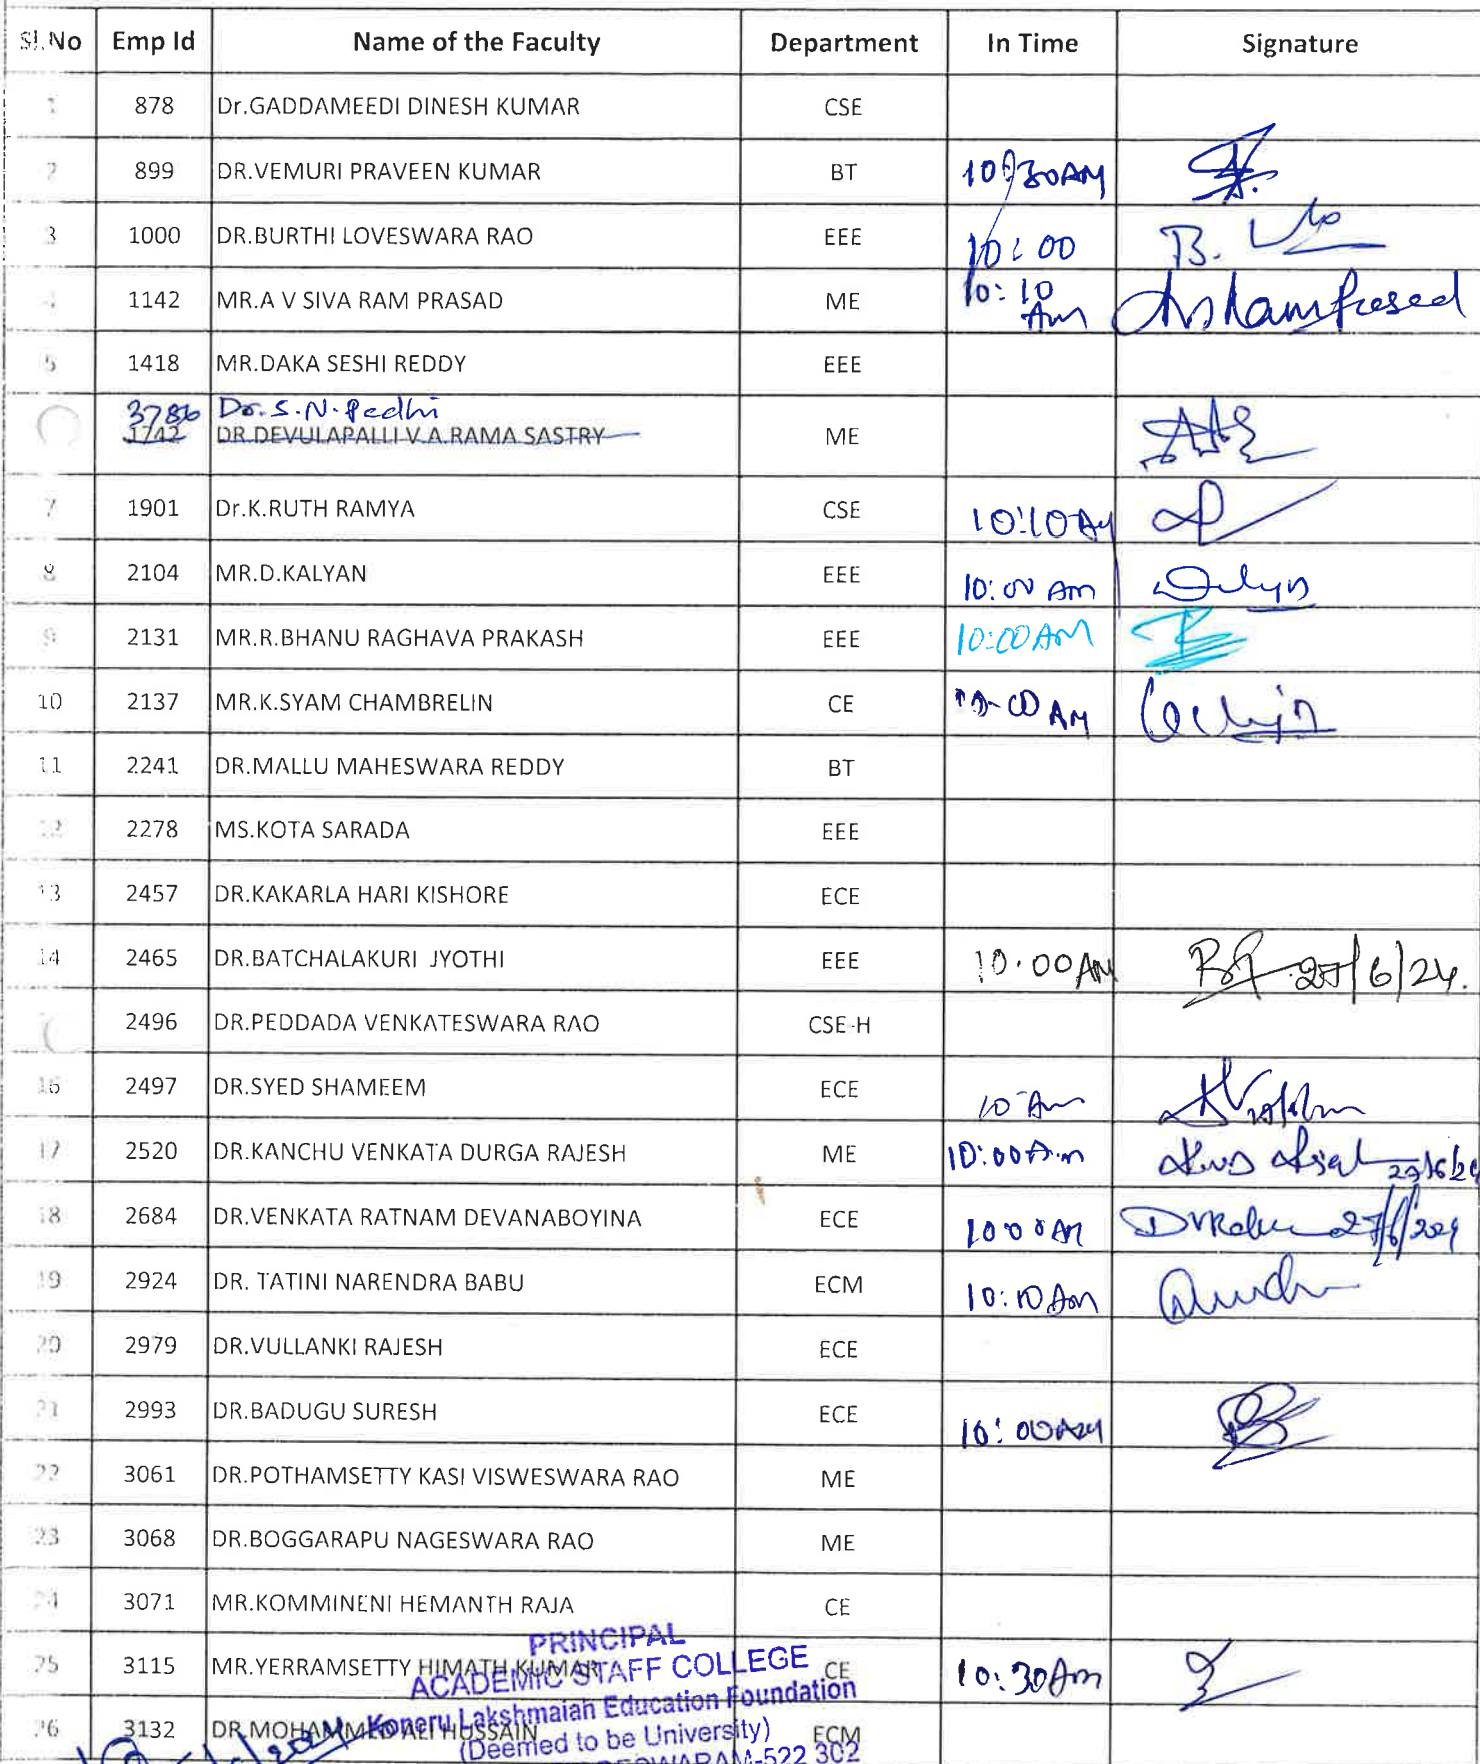 Sl.No Emp Id Name of the Faculty Department In Time Signature
1 878 Dr.GADDAMEEDI DINESH KUMAR CSE
2 899 DR.VEMURI PRAVEEN KUMAR BT 10:30AM
3 1000 DR.BURTHI LOVESWARA RAO EEE 10:00 B.
4 1142 MR.A V SIVA RAM PRASAD ME 10:10 Am
5 1418 MR.DAKA SESHI REDDY EEE
3786 Dr. S. N. Pedhi
1742 DR.DEVULAPALLI V A.RAMA SASTRY ME
7 1901 Dr.K.RUTH RAMYA CSE 10:10 AM
8 2104 MR.D.KALYAN EEE 10:00 Am
9 2131 MR.R.BHANU RAGHAVA PRAKASH EEE 10:00AM
10 2137 MR.K.SYAM CHAMBRELIN CE 10-00 AM
11 2241 DR.MALLU MAHESWARA REDDY BT
12 2278 MS.KOTA SARADA EEE
13 2457 DR.KAKARLA HARI KISHORE ECE
14 2465 DR.BATCHALAKURI JYOTHI EEE 10.00AM 27/6/24.
2496 DR.PEDDADA VENKATESWARA RAO CSE-H
16 2497 DR.SYED SHAMEEM ECE 10 Am
17 2520 DR.KANCHU VENKATA DURGA RAJESH ME 10:00 A.m 27/6/24
18 2684 DR.VENKATA RATNAM DEVANABOYINA ECE 1000AM 27/6/2024
19 2924 DR. TATINI NARENDRA BABU ECM 10:10 Am
20 2979 DR.VULLANKI RAJESH ECE
21 2993 DR.BADUGU SURESH ECE 10:00AM
22 3061 DR.POTHAMSETTY KASI VISWESWARA RAO ME
23 3068 DR.BOGGARAPU NAGESWARA RAO ME
24 3071 MR.KOMMINENI HEMANTH RAJA CE
PRINCIPAL
25 3115 MR.YERRAMSETTY HIMATH KUMAR CE 10:30Am
ACADEMIC STAFF COLLEGE
Koneru Lakshmaiah Education Foundation
26 3132 DR.MOHAMMED ALI HUSSAIN ECM
(Deemed to be University)
-522 302